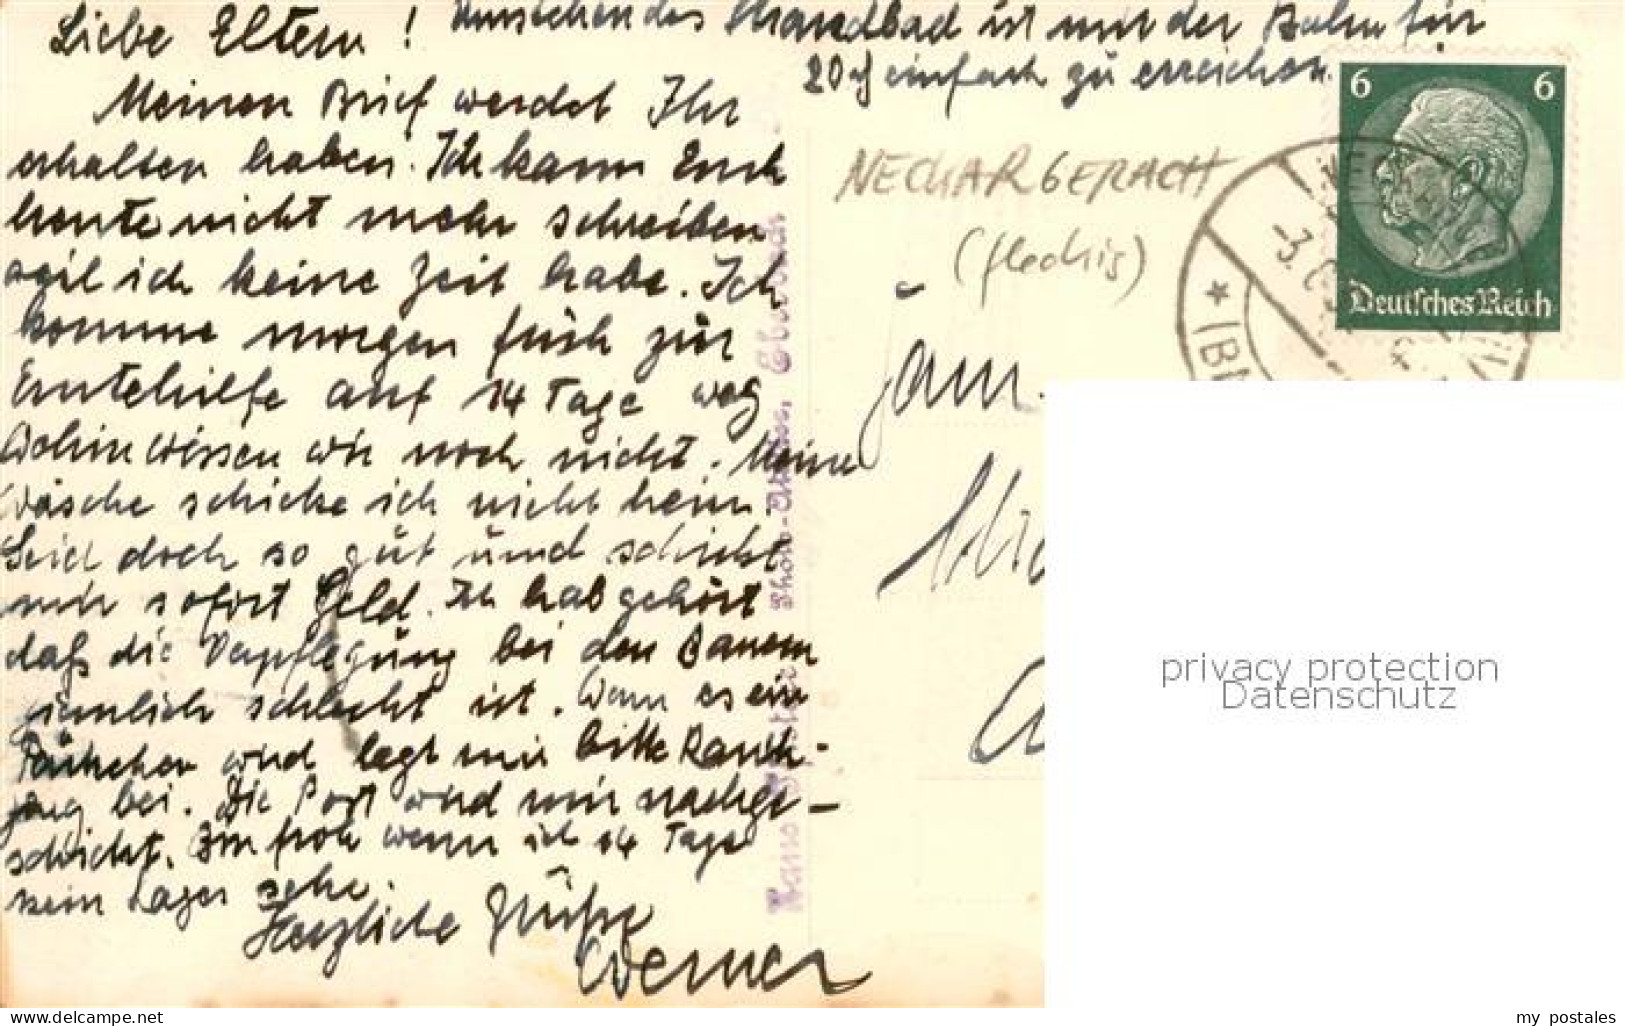 Umstehendes Strandbad ist mit der Bahn für
20 ₰ einfach zu erreichen.
Liebe Eltern!
Meinen Brief werdet Ihr
erhalten haben. Ich kann Euch
heute nicht mehr schreiben
weil ich keine Zeit habe. Ich
komme morgen früh zur
Erntehilfe auf 14 Tage weg
Wohin wissen wir noch nicht. Meine
Wäsche schicke ich nicht heim
Seid doch so gut und schickt
mir sofort Geld. Ich hab gehört
daß die Verpflegung bei den Bauern
ziemlich schlecht ist. Wenn es ein
Päckchen wird legt mir bitte Rauch-
zeug bei. Die Post wird mir nachge-
schickt. Bin froh wenn ich 14 Tage
kein Lager sehe.
Herzliche Grüße
Werner
NECKARGERACH
Fam.
6 6
Deutsches Reich
-3.
privacy protection
Datenschutz
www.delcampe.net
my_postales